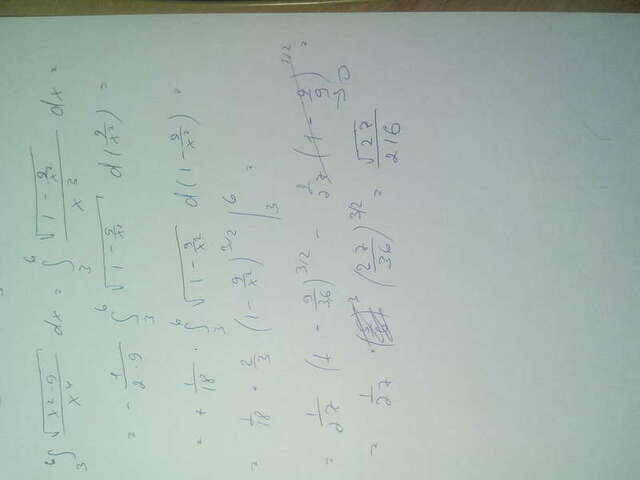 ∫₃⁶ √(x²-9)/x⁴ dx = ∫₃⁶ √(1 - 9/x²)/x³ dx =
= - 1/(2·9) ∫₃⁶ √(1 - 9/x²) d(9/x²) =
= + 1/18 · ∫₃⁶ √(1 - 9/x²) d(1 - 9/x²) =
= 1/18 · 2/3 (1 - 9/x²)^(3/2) |₃⁶ =
= 1/27 (1 - 9/36)^(3/2) - 1/27 (1 - 9/9)^(3/2) → 0 =
= 1/27 · (27/36)^(3/2) = √27/216